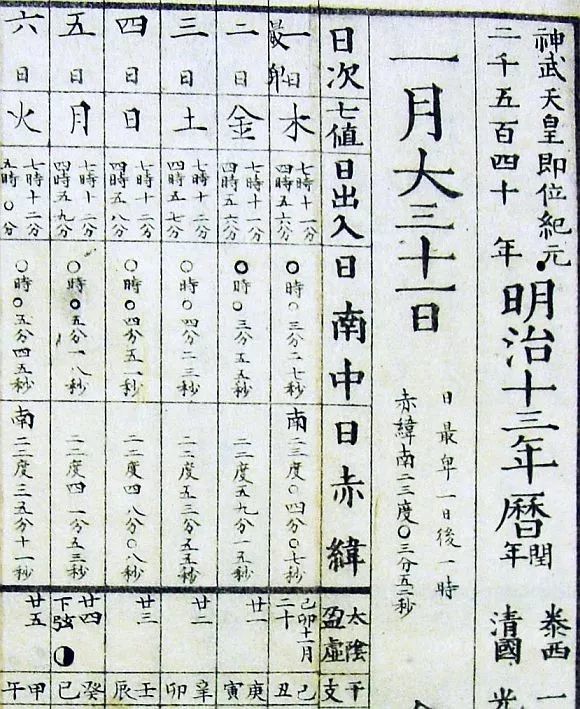 神武天皇即位紀元
二千五百四十年
明治十三年曆
閏年
泰西一
清國光
一月大三十一日
日最卑一日後一時
赤緯南二三度〇三分五二秒
日次 七値 日出入 日南中 日赤緯 太陰盈虛 干支
一日 最卑 木 七時十一分 四時五六分 〇時〇三分二七秒 南二三度〇四分〇七秒 己卯十一月二十 己丑
二日 金 七時十一分 四時五六分 〇時〇三分五五秒 二二度五九分一五秒 廿一 庚寅
三日 土 七時十二分 四時五七分 〇時〇四分二三秒 二二度五三分五五秒 廿二 辛卯
四日 日 七時十二分 四時五八分 〇時〇四分五一秒 二二度四八分〇八秒 廿三 壬辰
五日 月 七時十二分 四時五九分 〇時〇五分一八秒 二二度四一分五三秒 廿四 下弦 癸巳
六日 火 七時十二分 五時〇分 〇時〇五分四五秒 南二二度三五分十一秒 廿五 甲午